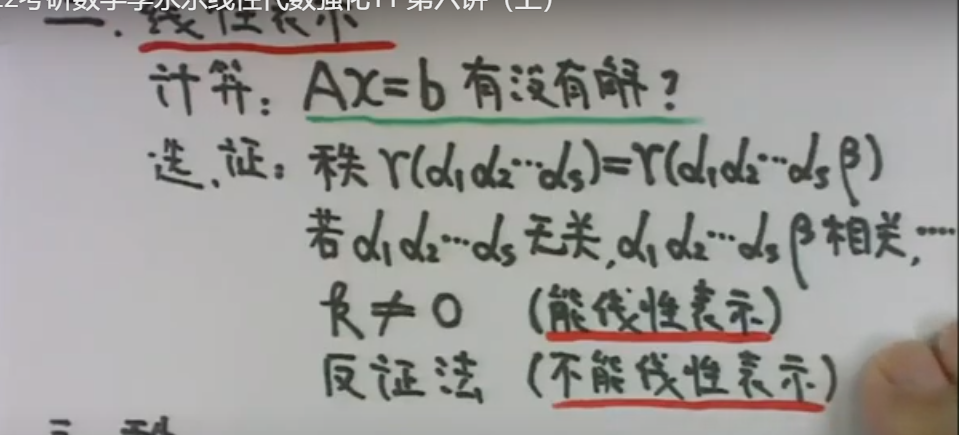 22考研数学李永乐线性代数强化11 第六讲（上）
一. 线性表示
计算: Ax=b 有没有解?
选、证: 秩 r(α₁α₂…αₛ)=r(α₁α₂…αₛβ)
若α₁α₂…αₛ无关,α₁α₂…αₛβ相关,……
k≠0 (能线性表示)
反证法 (不能线性表示)